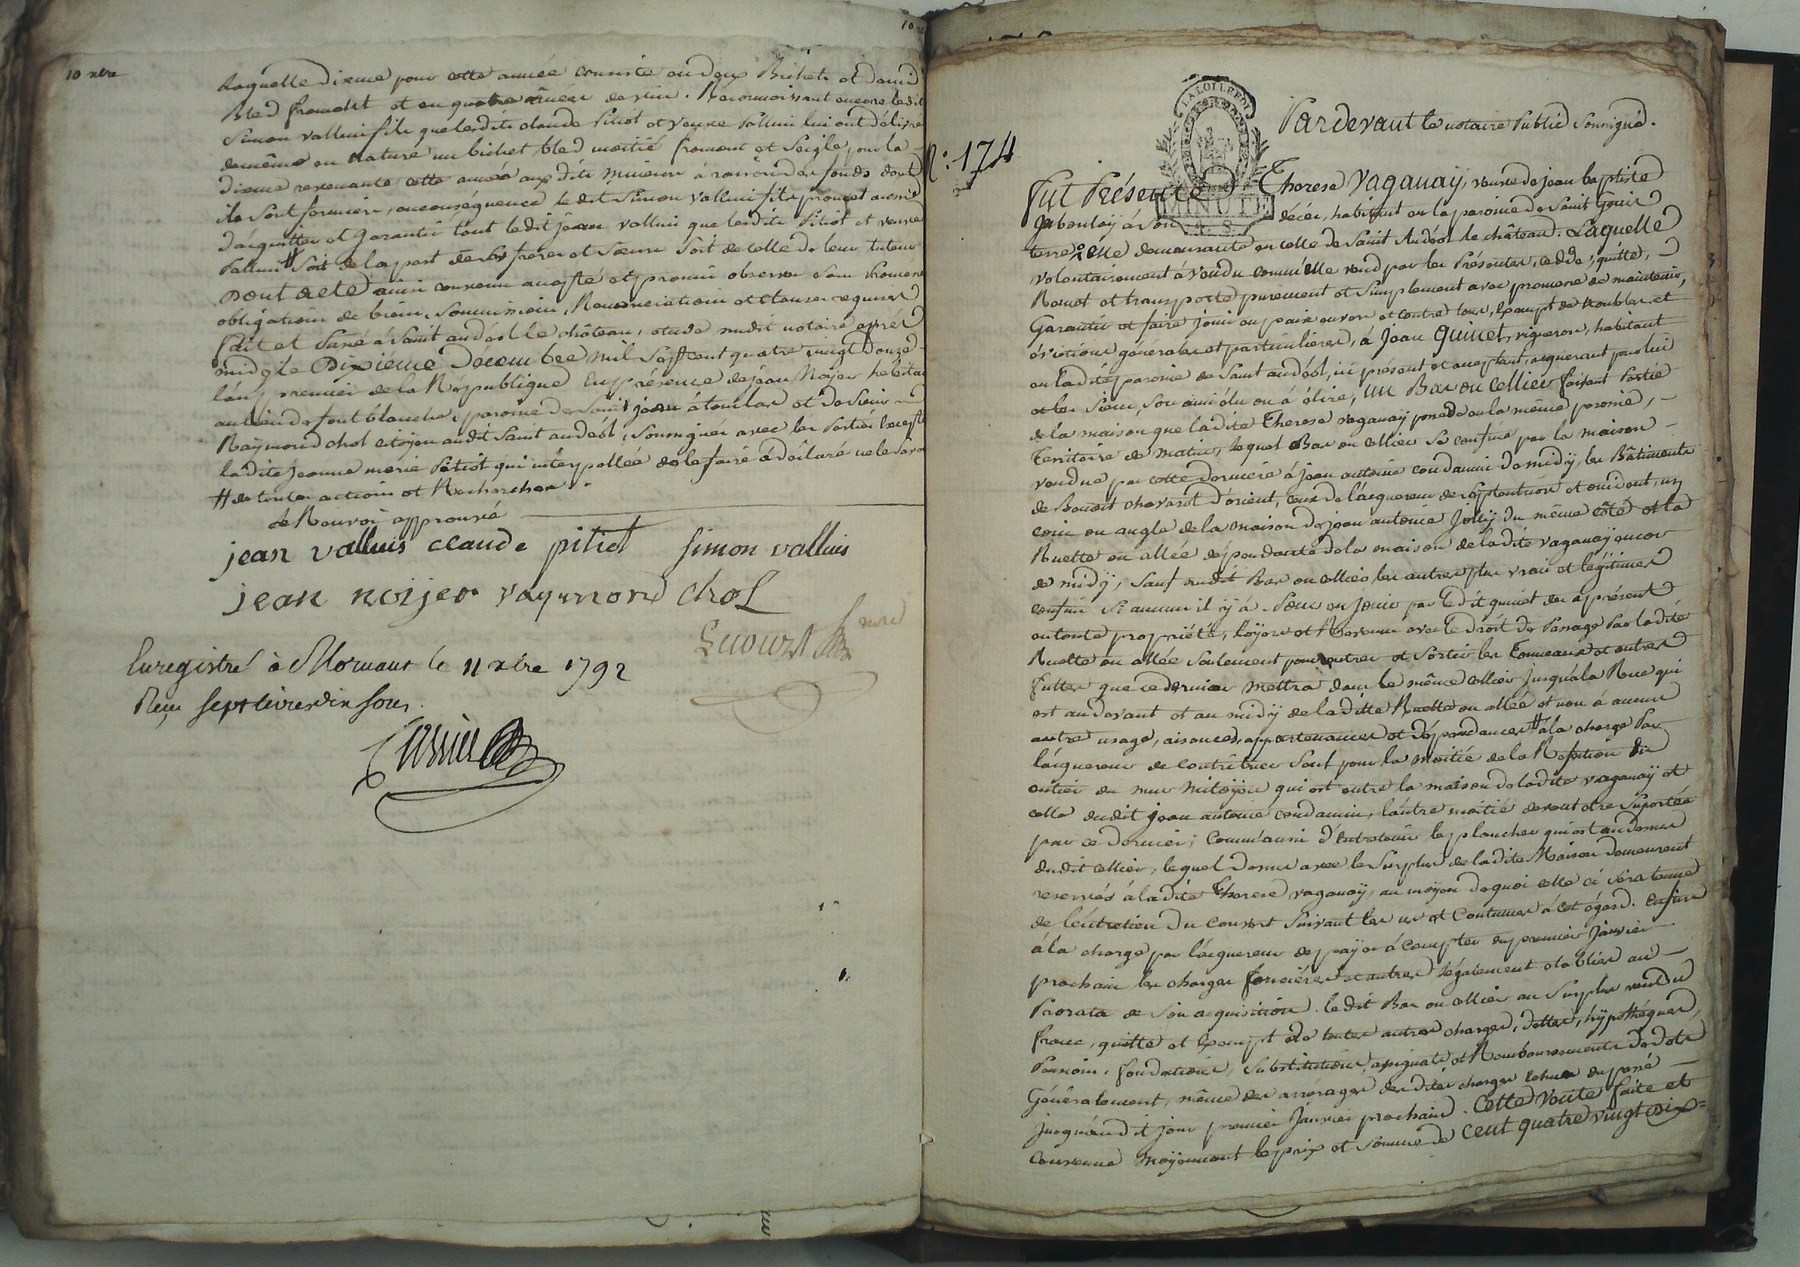 10 xbre
laquelle dixme pour cette année consiste en deux Bichets et demi
Bled froment et en quatre ânées de vin. Reconnoissant encore ledit
Simon valluis fils que lesdits claude Pitiot et veuve valluis lui ont délivré
demême en nature un bichet bled moitié froment et Seigle, pour la
dixme revenante cette année aux dits Mineurs à raison des fonds dont
ils sont fermiers, en conséquence ledit Simon valluis fils promet aussi
d'acquitter et garantir tant ledit jean valluis que lesdits Pitiot et veuve
valluis # soit de la part de ses freres et Sœurs soit de celle de leur tuteur
Dont acte ainsi convenu accepté et promis observer sous promesse
obligation de biens, Soumissions, Renonciations et clauses requises
Fait et Passé à Saint andéol le château, etude mudit notaire après
midy Le Dixième Decembre mil Sept cent quatre vingt douze
l'an premier de la République En présence de jean Noyer habitant
au lieu de font blanche, paroisse de Saint jean à touslas et de Sieur
Raÿmond chol citoyen audit Saint andéol, Soussignés avec les Parties Excepté
ladite jeanne marie Pitiot qui interpellée de le faire a déclaré ne le savoir
# de toutes actions et Recherches.
de Renvoi approuvé
jean valluis claude pitiot simon valluis
jean noijer raymond chol
Enregistré à Mornant le 11 xbre 1792
Reçu sept livres dix sous.
N.º 174
LA LOI LE ROI
MINUTE
Pardevant le notaire Public Soussigné.
Fut Présente Therese vaganaÿ, veuve de jean baptiste
décés, habitant en la paroisse de Saint
terre elle demeurante en celle de Saint Andéol le château. Laquelle
volontairement à vendu comm'elle vend par les Présentes, cedde, quitte,
Remet et transporte purement et Simplement avec promesse de maintenir,
Garantir et faire jouir en paix envers et contre tous, Exempt de troubles et
évictions générales et particulieres, à Jean Guinet, vigneron, habitant
en ladite paroisse de Saint andéol, ici présent et acceptant, acquerant pour lui
et les Siens, Son ami élu ou à élire, un Bas ou Cellier faisant Partie
de la maison que ladite Therese vaganaÿ possede en la même paroisse,
Territoire de lequel Bas ou cellier Se confine par la maison
vendue par cette derniere à jean antoine condamin de midÿ, les Bâtiments
de Benoit chavant d'orient, ceux de l'acquereur de Septentrion et occident, un
coin ou angle de la maison de jean antoine Jolly du même côté et la
Ruette ou allée dépendante de la maison de ladite vaganaÿ encor
de midÿ, Sauf audit Bas ou cellier les autres plus vrais et legitimes
confins Si aucuns il ÿ à. Pour en Jouir par ledit guinet dès àprésent
en toute propriété, loÿers et Revenus avec le droit de Passage Par ladite
Ruette ou allée seulement pour entrer et Sortir les Tonneaux et autres
futtes que ce dernier mettra dans le même cellier jusqu'à la Rue qui
est au devant et au midÿ de laditte Ruette ou allée et non à aucun
autre usage, aisances, appartenances et dépendances # à la charge Par
l'acquereur de contribuer Seul pour la moitié de la Réfection du
entier du mur mitoÿen qui est entre la maison de ladite vaganaÿ et
celle dudit jean antoine condamin, l'autre moitié devant être Suportée
par ce dernier; comm'aussi d'entretenir le plancher qui est au dessus
dudit cellier, lequel dessus avec le Surplus de ladite Maison demeurent
reservés à ladite Therese vaganaÿ, au moÿen de quoi celle ci sera tenue
de l'entretien du couvert Suivant les us et Coutumes à cet égard. Enfin
à la charge par l'acquereur de païer à compter du premier Janvier
prochain les charges foncières et autres légalement établies au
Prorata de Son acquisition. ledit Bas ou cellier au Surplus vendu
franc, quitte et Exempt de toutes autres charges, dettes, hÿpothéques,
Pensions, fondations, Substitutions, assignats et Remboursements de dots
Généralement, même des arrérages desdites charges échues du passé
jusqu'audit jour premier Janvier prochain. Cette vente faite et
convenue moÿennant le prix et Somme de cent quatre vingt dix=